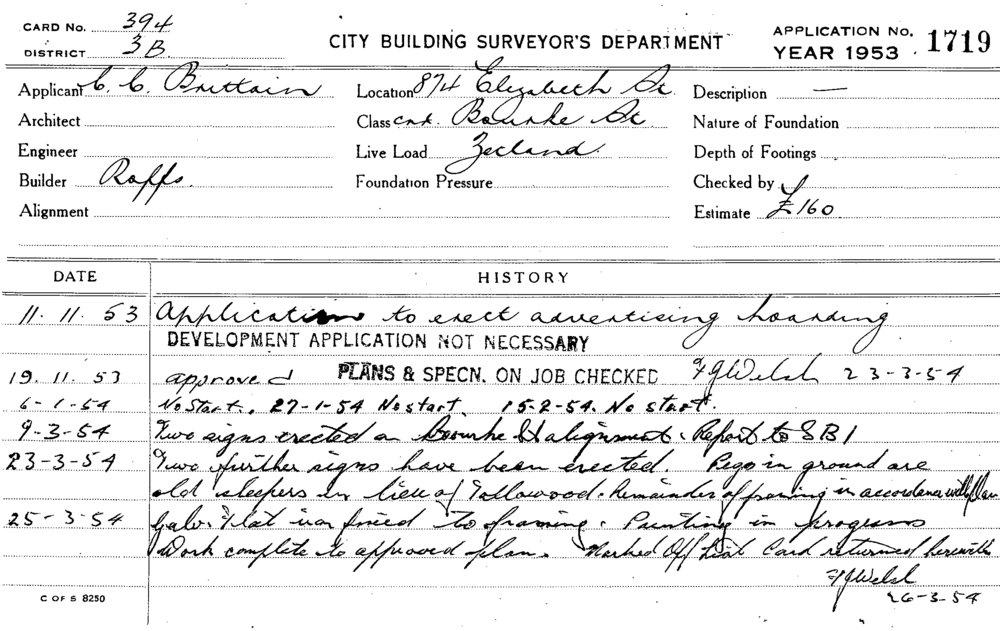 CARD NO. 394
DISTRICT 3B
CITY BUILDING SURVEYOR'S DEPARTMENT
APPLICATION NO. 1719
YEAR 1953
Applicant C. C. Brittain
Location 874 Elizabeth St.
Description —
Architect
Class cnr. Bourke St.
Nature of Foundation
Engineer
Live Load Zetland.
Depth of Footings
Builder Roffs.
Foundation Pressure
Checked by
Alignment
Estimate £160
DATE HISTORY
11. 11. 53 Application to erect advertising hoarding
DEVELOPMENT APPLICATION NOT NECESSARY
19. 11. 53 approved PLANS & SPECN. ON JOB CHECKED FJWelsh 23-3-54
6-1-54 No Start. 27-1-54 No start. 15-2-54. No start.
9-3-54 Two signs erected on Bourke St alignment. Report to SB1
23-3-54 Two further signs have been erected. Pegs in ground are
old sleepers in lieu of Tallowood. Remainder of framing in accordance with plan
25-3-54 Galv. Flat iron fixed to framing. Painting in progress
Work complete to approved plan. Marked Off List Card returned herewith
FJWelsh
26-3-54
C OF S 8250